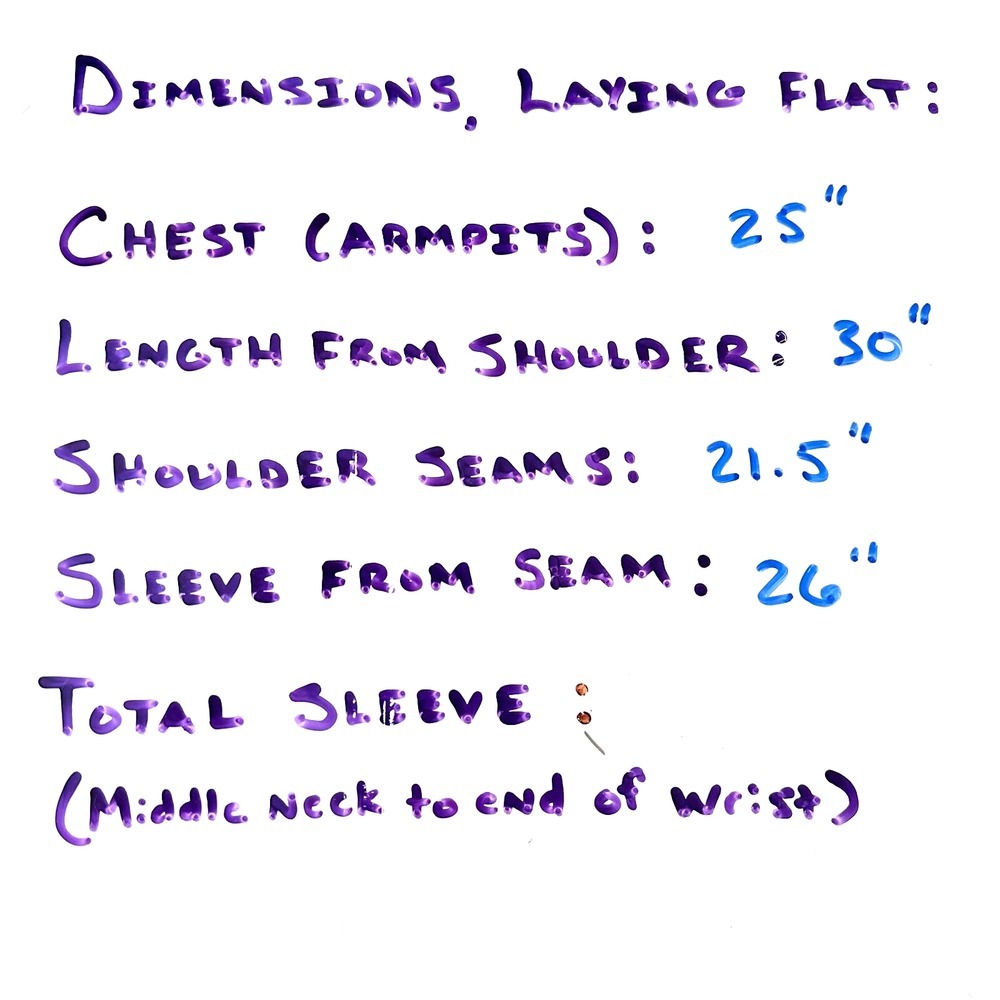 DIMENSIONS, LAYING FLAT:
CHEST (ARMPITS): 25"
LENGTH FROM SHOULDER: 30"
SHOULDER SEAMS: 21.5"
SLEEVE FROM SEAM: 26"
TOTAL SLEEVE:
(Middle Neck to end of Wrist)